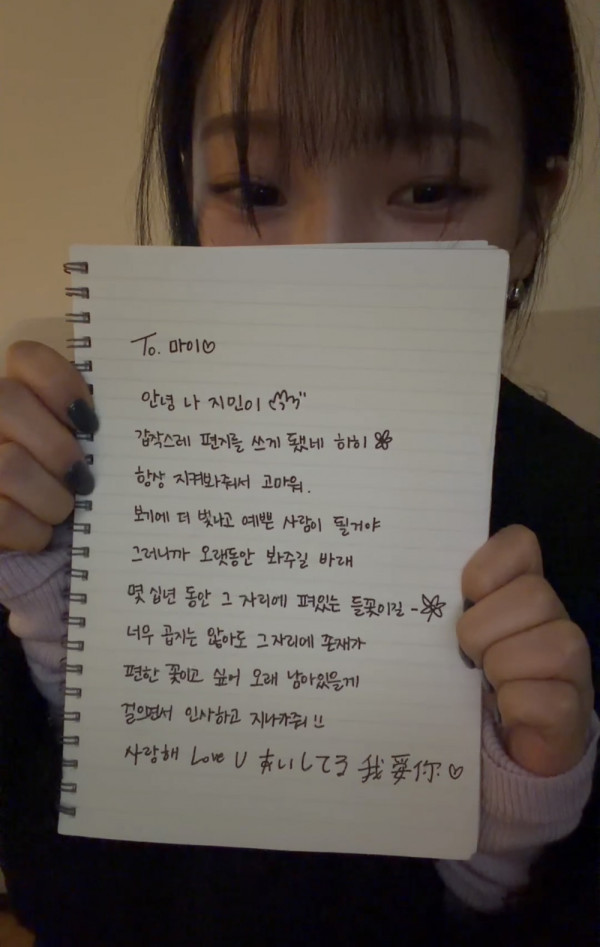 To. 마이♡
안녕 나 지민이
갑작스레 편지를 쓰게 됐네 히히
항상 지켜봐줘서 고마워.
보기에 더 빛나고 예쁜 사람이 될거야
그러니까 오랫동안 봐주길 바래
몇 십년 동안 그 자리에 펴있는 들꽃이길 -
너무 곱지는 않아도 그자리에 존재가
편한 꽃이고 싶어 오래 남아있을게
걸으면서 인사하고 지나가줘!!
사랑해 Love U あいしてる 我爱你♡